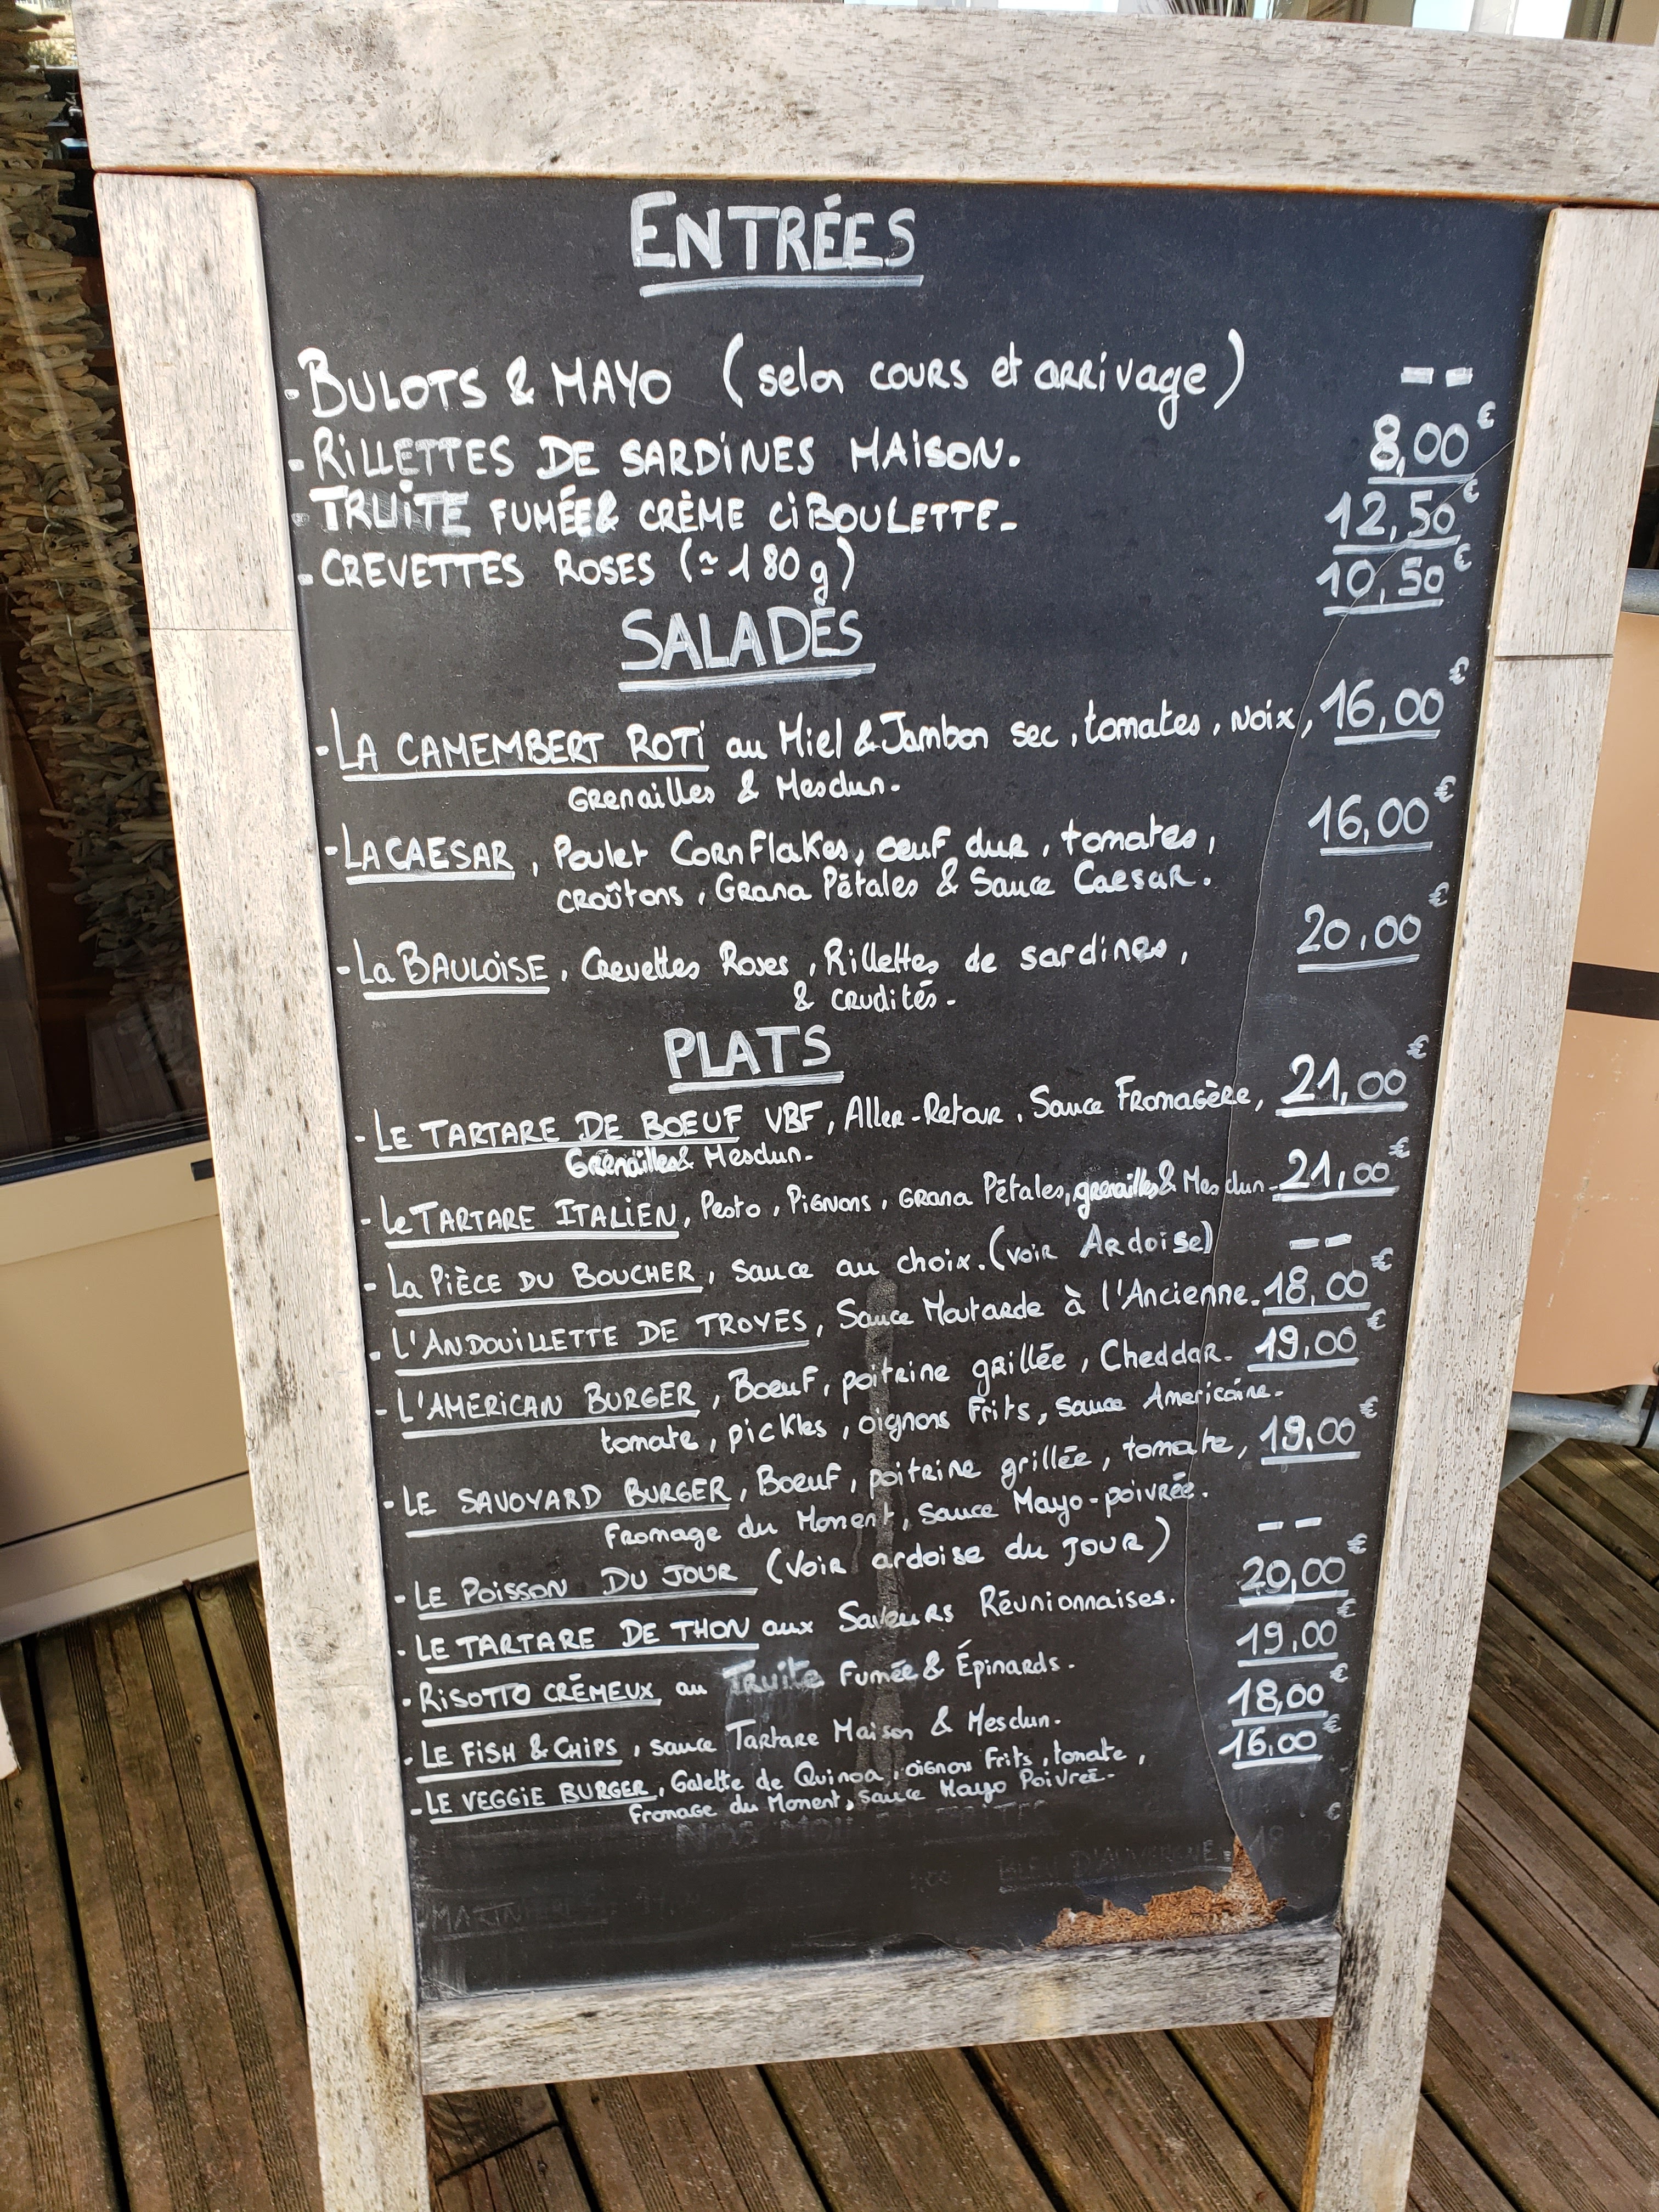 ENTRÉES
- BULOTS & MAYO (selon cours et arrivage) --
- RILLETTES DE SARDINES MAISON. 8,00€
- TRUITE FUMÉE & CRÈME CIBOULETTE. 12,50€
- CREVETTES ROSES (≈180g) 10,50€
SALADES
- LA CAMEMBERT ROTI au Miel & Jambon sec, tomates, noix, 16,00€
Grenailles & Mesclun.
- LA CAESAR, Poulet CornFlakes, oeuf dur, tomates, 16,00€
croûtons, Grana Pétales & Sauce Caesar.
- La BAULOISE, Crevettes Roses, Rillettes de sardines, 20,00€
& crudités.
PLATS
- LE TARTARE DE BOEUF VBF, Aller-Retour, Sauce Fromagère, 21,00€
Grenailles & Mesclun.
- Le TARTARE ITALIEN, Pesto, Pignons, Grana Pétales, grenailles & Mesclun. 21,00€
- La PIÈCE DU BOUCHER, sauce au choix. (voir Ardoise) --
- L'ANDOUILLETTE DE TROYES, Sauce Moutarde à l'Ancienne. 18,00€
- L'AMERICAN BURGER, Boeuf, poitrine grillée, Cheddar. 19,00€
tomate, pickles, oignons Frits, sauce Américaine.
- LE SAVOYARD BURGER, Boeuf, poitrine grillée, tomate, 19,00€
Fromage du Moment, sauce Mayo-poivrée.
- LE POISSON DU JOUR (Voir ardoise du JOUR) --
- LE TARTARE DE THON aux Saveurs Réunionnaises. 20,00€
- RISOTTO CRÉMEUX au Truite Fumée & Épinards. 19,00€
- LE FISH & CHIPS, sauce Tartare Maison & Mesclun. 18,00€
- LE VEGGIE BURGER, Galette de Quinoa, oignons Frits, tomate, 16,00€
Fromage du Moment, sauce Mayo Poivrée.
NOS
BLEU D'AUVERGNE